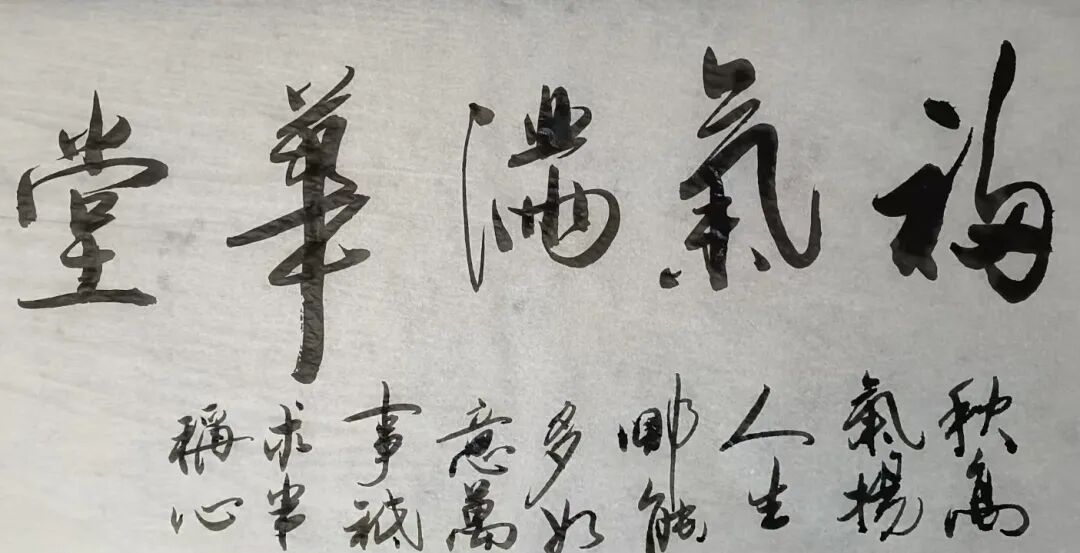 福氣滿華堂
秋高
氣揚
人生
哪能
多如
意萬
事祇
求半
稱心